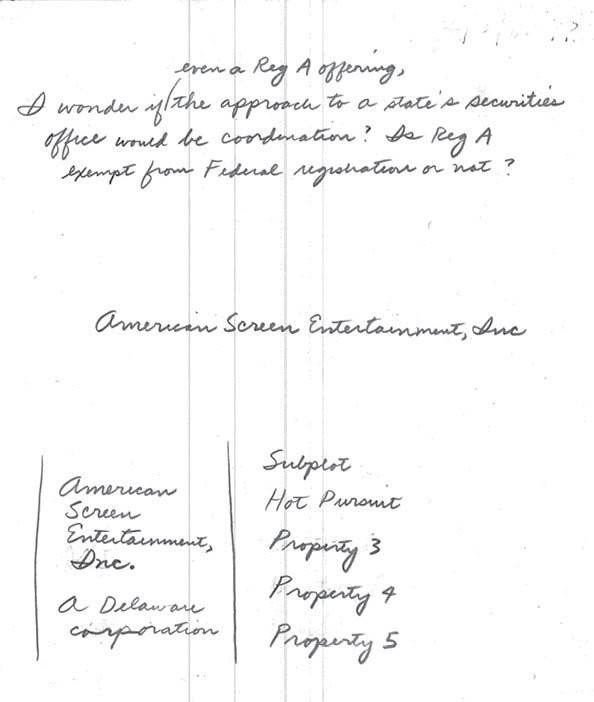 even a Reg A offering,
I wonder if/the approach to a state's securities
office would be coordination? Is Reg A
exempt from Federal registration or not?
American Screen Entertainment, Inc
American
Screen
Entertainment,
Inc.
A Delaware
corporation
Subplot
Hot Pursuit
Property 3
Property 4
Property 5